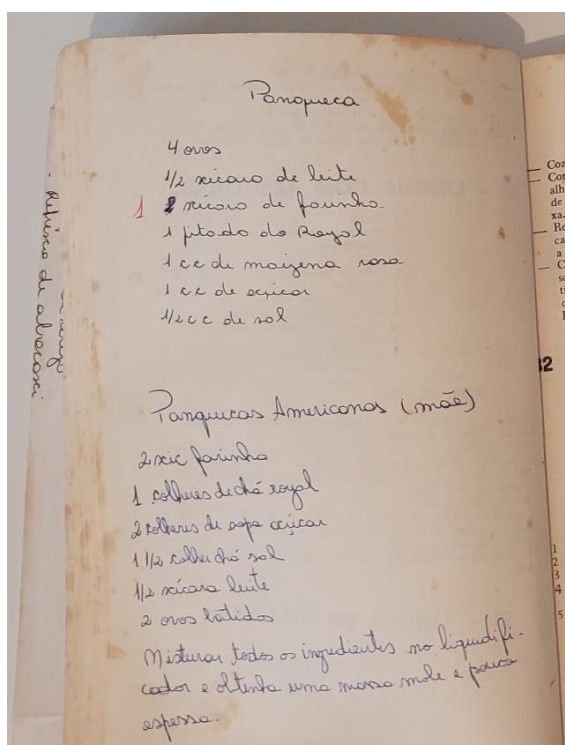 Panqueca
4 ovos
1/2 xícara de leite
1 xícara de farinha
1 pitada de Royal
1 cc de maizena rasa
1 cc de açúcar
1/2 cc de sal
Panquecas Americanas (mãe)
2 xic farinha
1 colheres de chá royal
2 colheres de sopa açúcar
1 1/2 colher chá sal
1/2 xícara leite
2 ovos batidos
Misturar todos os ingredientes no liquidifi-
cador e obtenha uma massa mole e pouco
espessa.
Refresco de abacaxi
32
1
2
3
4
5